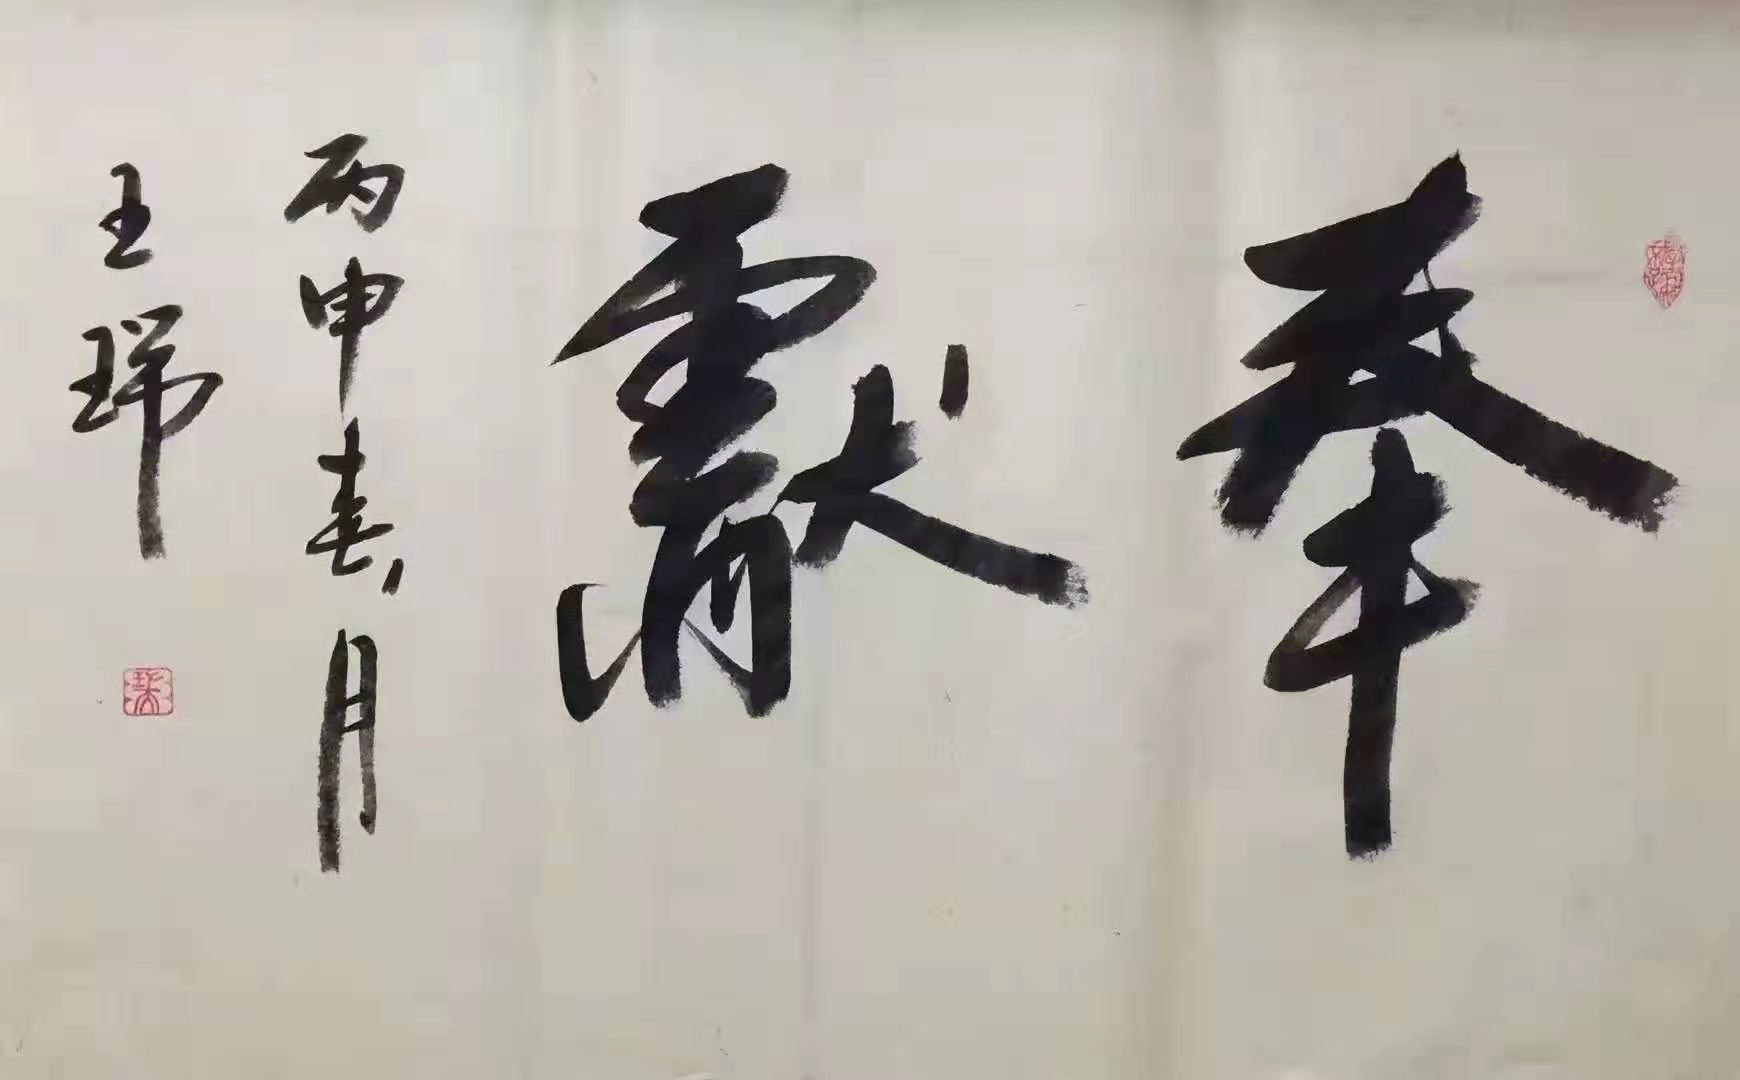 奉獻
丙申春月
王瑞